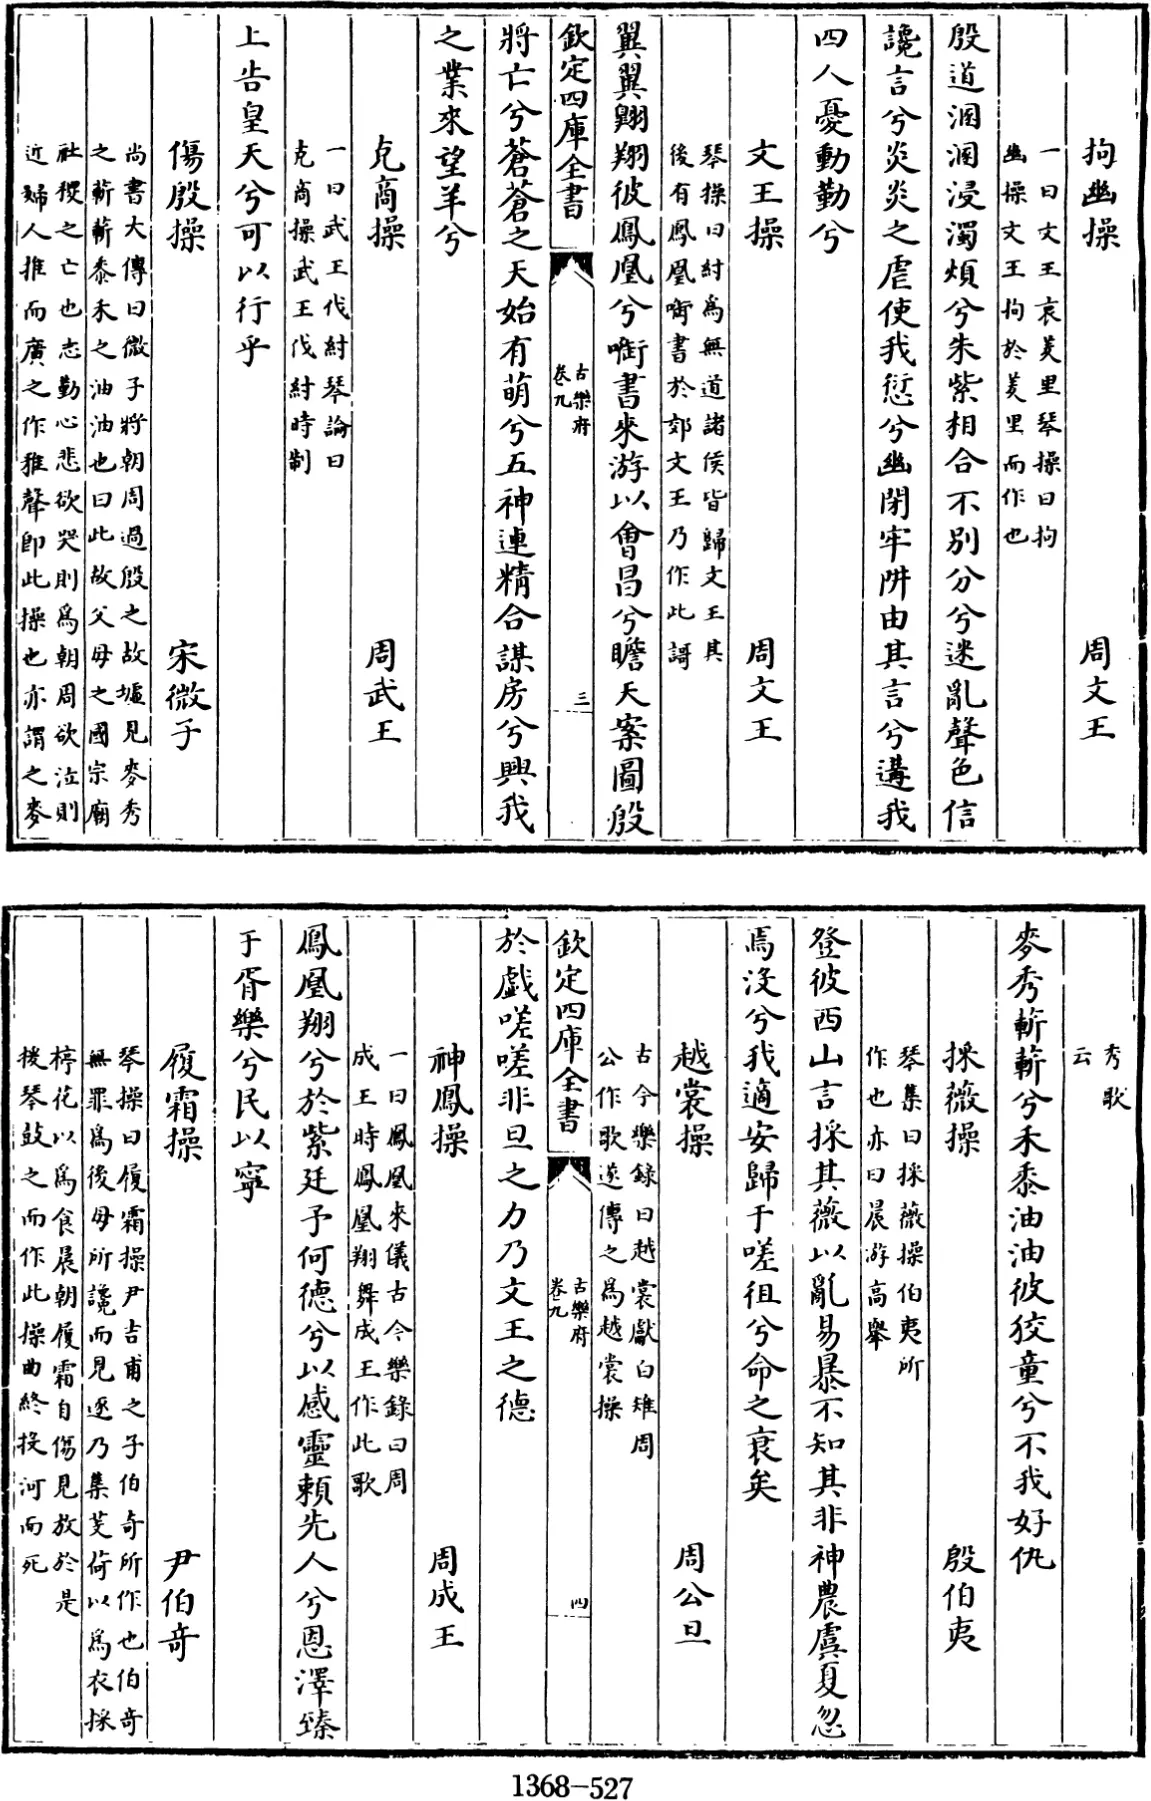 拘幽操　周文王
一曰文王哀羑里琴操曰拘
幽操文王拘於羑里而作也
殷道溷溷浸濁煩兮朱紫相合不別分兮迷亂聲色信
讒言兮炎炎之虐使我愆兮幽閉牢阱由其言兮遘我
四人憂動勤兮
文王操　周文王
琴操曰紂為無道諸侯皆歸文王其
後有鳳凰啣書於郊文王乃作此謌
翼翼翱翔彼鳳凰兮啣書來游以會昌兮瞻天案圖殷
欽定四庫全書　古樂府　卷九　三
將亡兮蒼蒼之天始有萌兮五神連精合謀房兮興我
之業來望羊兮
克商操　周武王
一曰武王伐紂琴論曰
克商操武王伐紂時制
上告皇天兮可以行乎
傷殷操　宋微子
尚書大傳曰微子將朝周過殷之故墟見麥秀
之蔪蔪黍禾之油油也曰此故父母之國宗廟
社稷之亡也志動心悲欲哭則為朝周欲泣則
近婦人推而廣之作雅聲即此操也亦謂之麥
秀歌
云
麥秀蔪蔪兮禾黍油油彼狡童兮不我好仇
採薇操　殷伯夷
琴集曰採薇操伯夷所
作也亦曰晨游高舉
登彼西山言採其薇以亂易暴不知其非神農虞夏忽
焉沒兮我適安歸于嗟徂兮命之衰矣
越裳操　周公旦
古今樂錄曰越裳獻白雉周
公作歌遂傳之為越裳操
欽定四庫全書　古樂府　卷九　四
於戲嗟嗟非旦之力乃文王之德
神鳳操　周成王
一曰鳳凰來儀古今樂錄曰周
成王時鳳凰翔舞成王作此歌
鳳凰翔兮於紫廷予何德兮以感靈賴先人兮恩澤臻
于胥樂兮民以寧
履霜操　尹伯奇
琴操曰履霜操尹吉甫之子伯奇所作也伯奇
無罪為後母所讒而見逐乃集芰荷以為衣採
楟花以為食晨朝履霜自傷見放於是
援琴鼓之而作此操曲終投河而死
1368-527